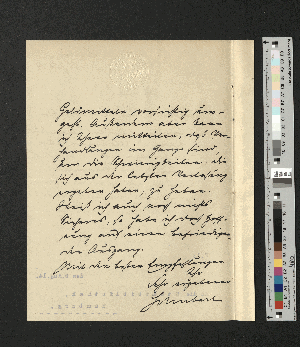 Geldmitteln vorsichtig um-
geht. Außerdem aber kann
ich Ihnen mitteilen, daß Ver-
handlungen im Gange sind,
um die Schwierigkeiten, die
sich aus der letzten Verfassung
ergeben haben, zu heben.
Weiß ich auch noch nichts
Sicheres, so habe ich doch Hoff-
nung auf einen befriedigen-
den Ausgang.
Mit den besten Empfehlungen
Ihr
sehr ergebener